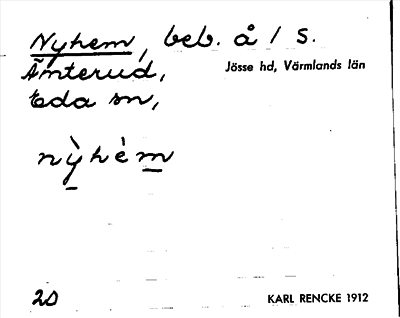 Nyhem, beb. å 1 S.
Ämterud,
Jösse hd, Värmlands län
Eda sn,
nỳhèm
20
KARL RENCKE 1912